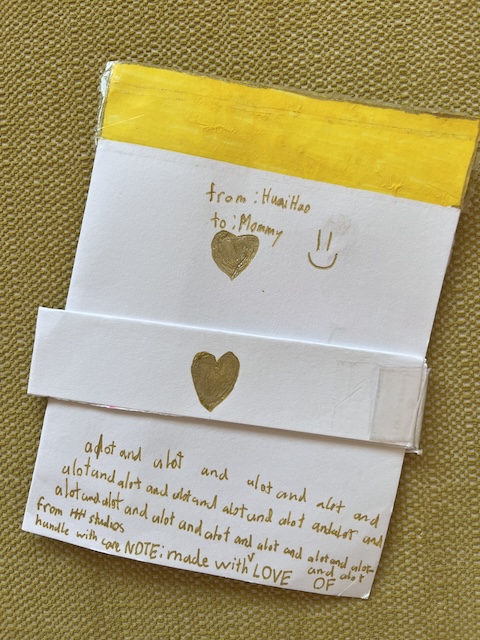 from: HuaiHao
to: Mommy
alot and alot and alot and alot and
alot and alot and alot and alot and alot and alot and
alot and alot and alot and alot and alot and alot and alot and alot
from HH studios and alot
handle with care NOTE: made with LOVE OF